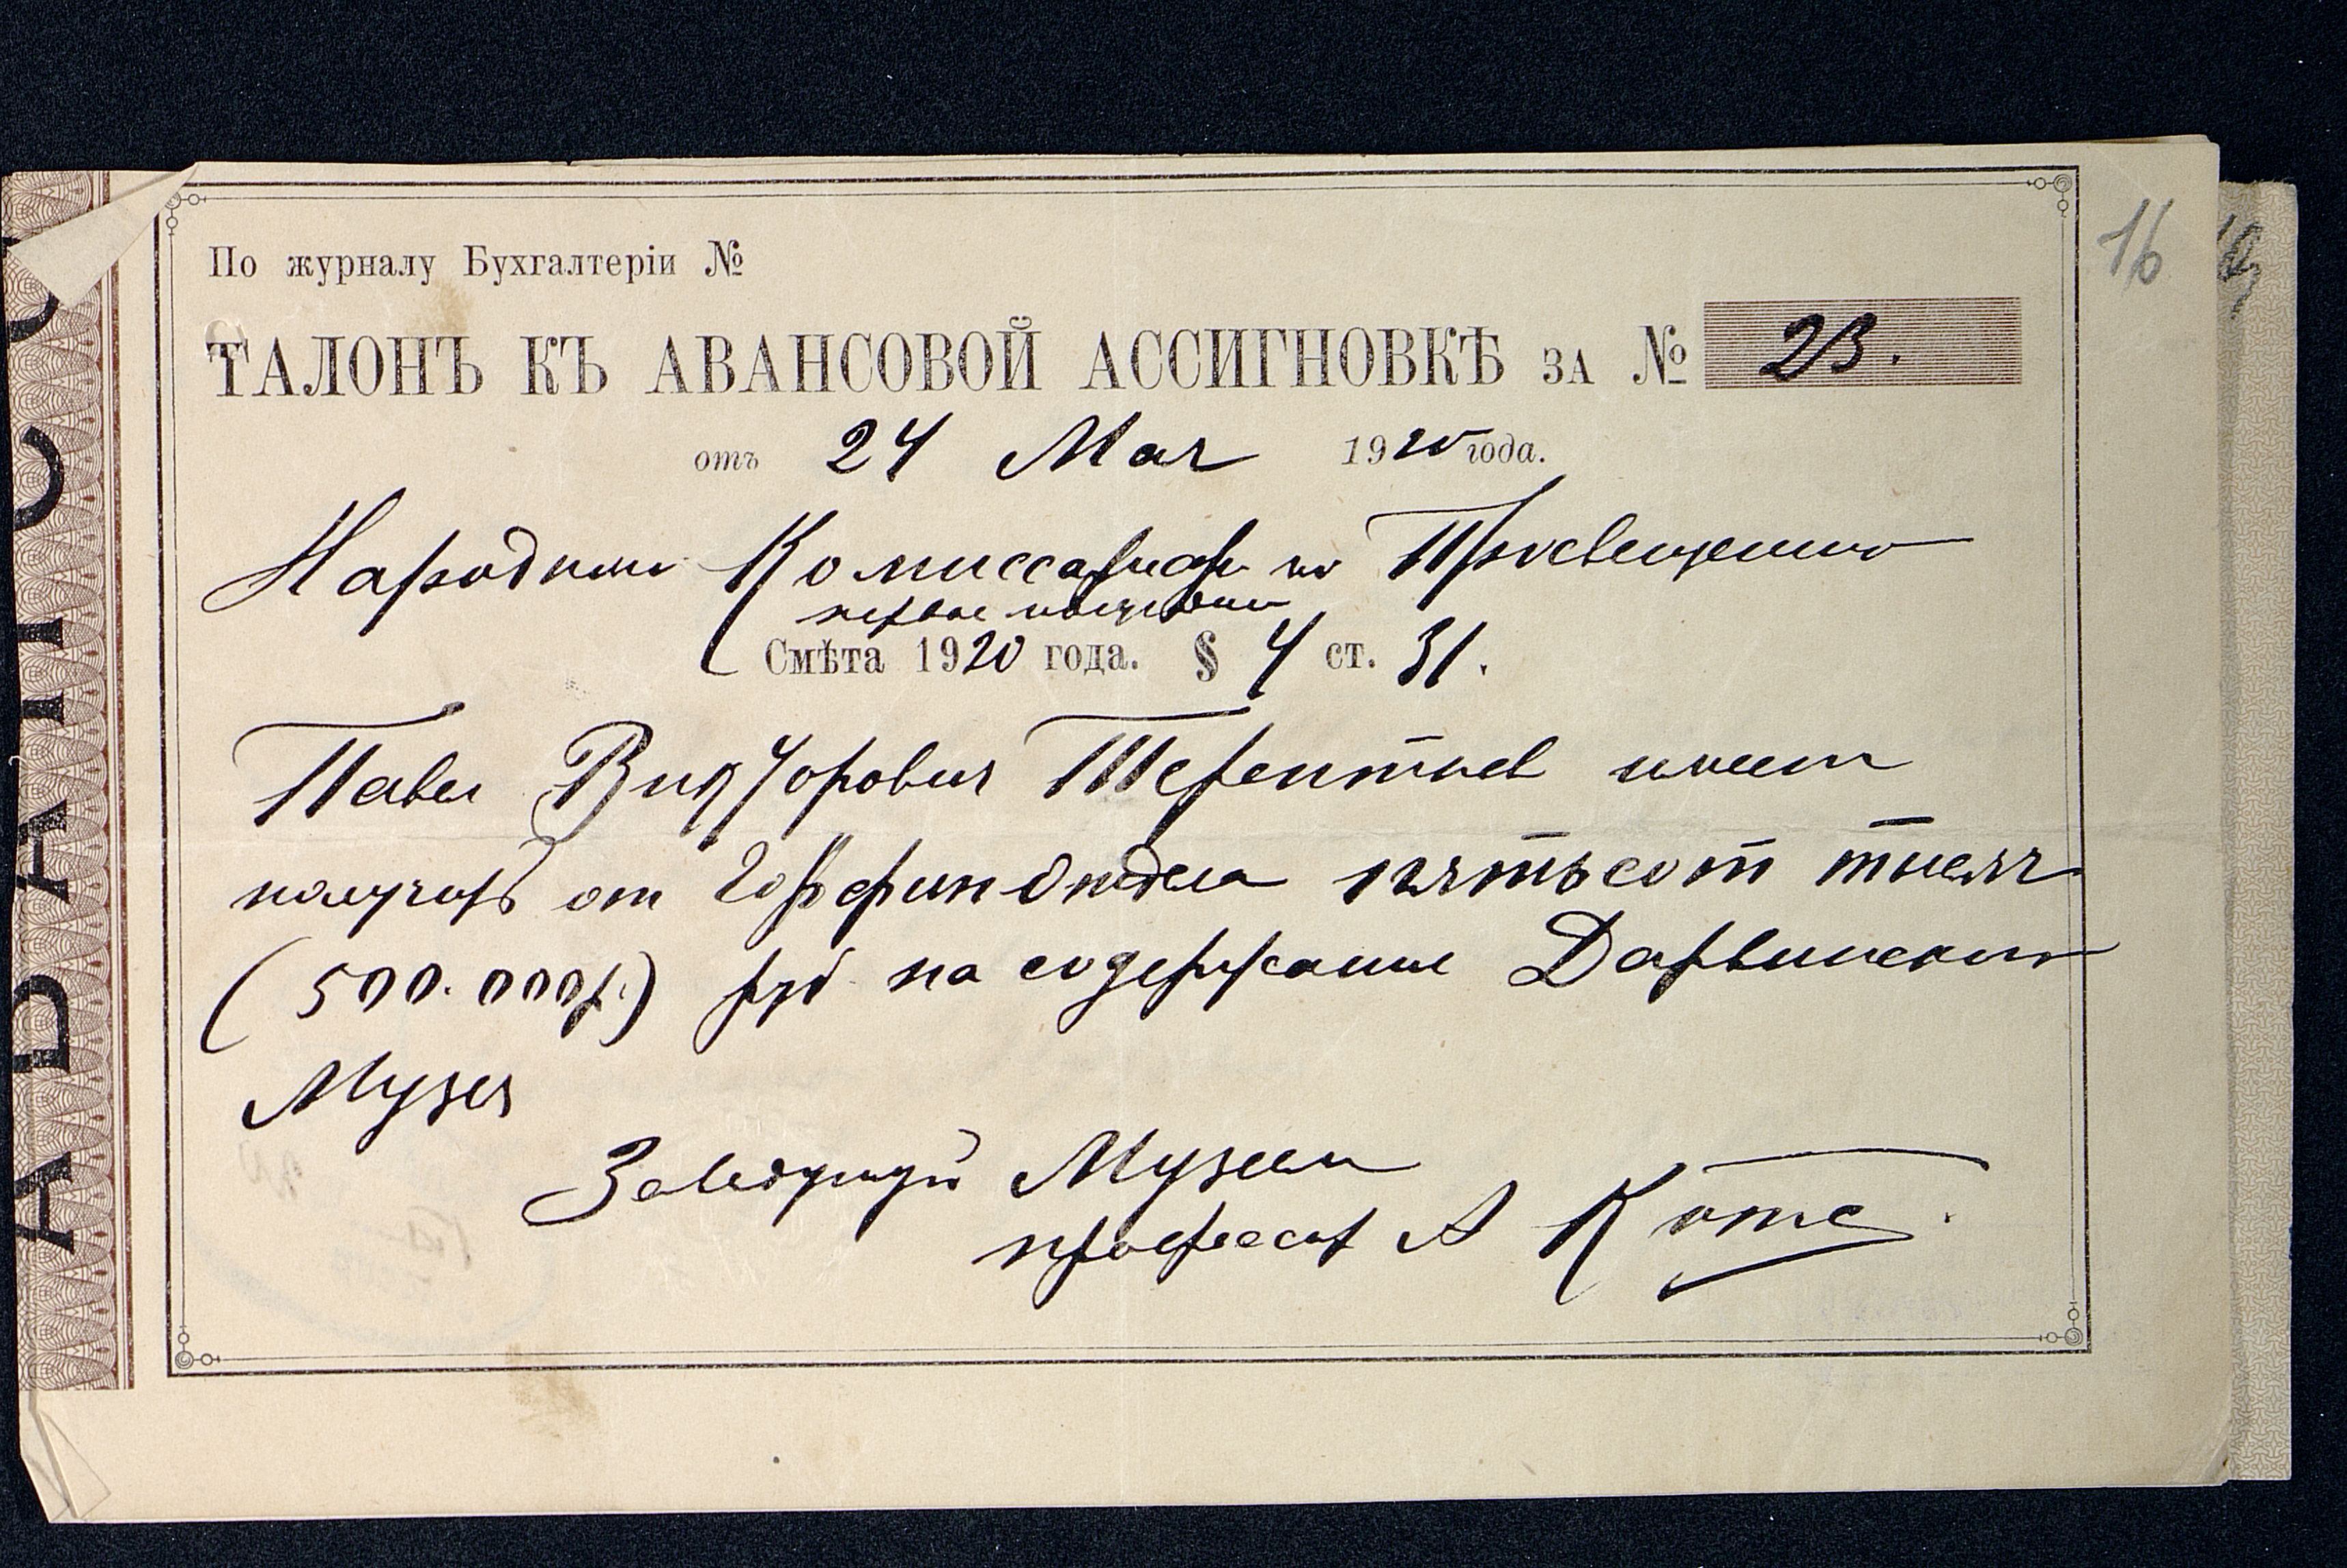 16
По журналу Бухгалтеріи №
ТАЛОНЪ КЪ АВАНСОВОЙ АССИГНОВКѢ ЗА № 23.
отъ 24 Мая 1920 года.
Народный Комиссариат по Просвещению
первое полугодие
Смѣта 1920 года. § 4 ст. 31.
Павел Терентьев имеет
получить от Горфинотдела пятьсот тысяч
(500.000р.) руб на содержание Дарвинского
Музея
Заведующий Музеем
профессор А Котс.